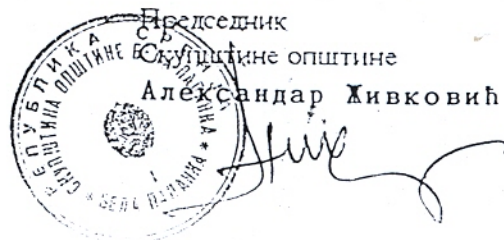 Председник
Скупштине општине
Александар Живковић
РЕПУБЛИКА СР
СКУПШТИНА ОПШТИНЕ БЕЛА ПАЛАНКА